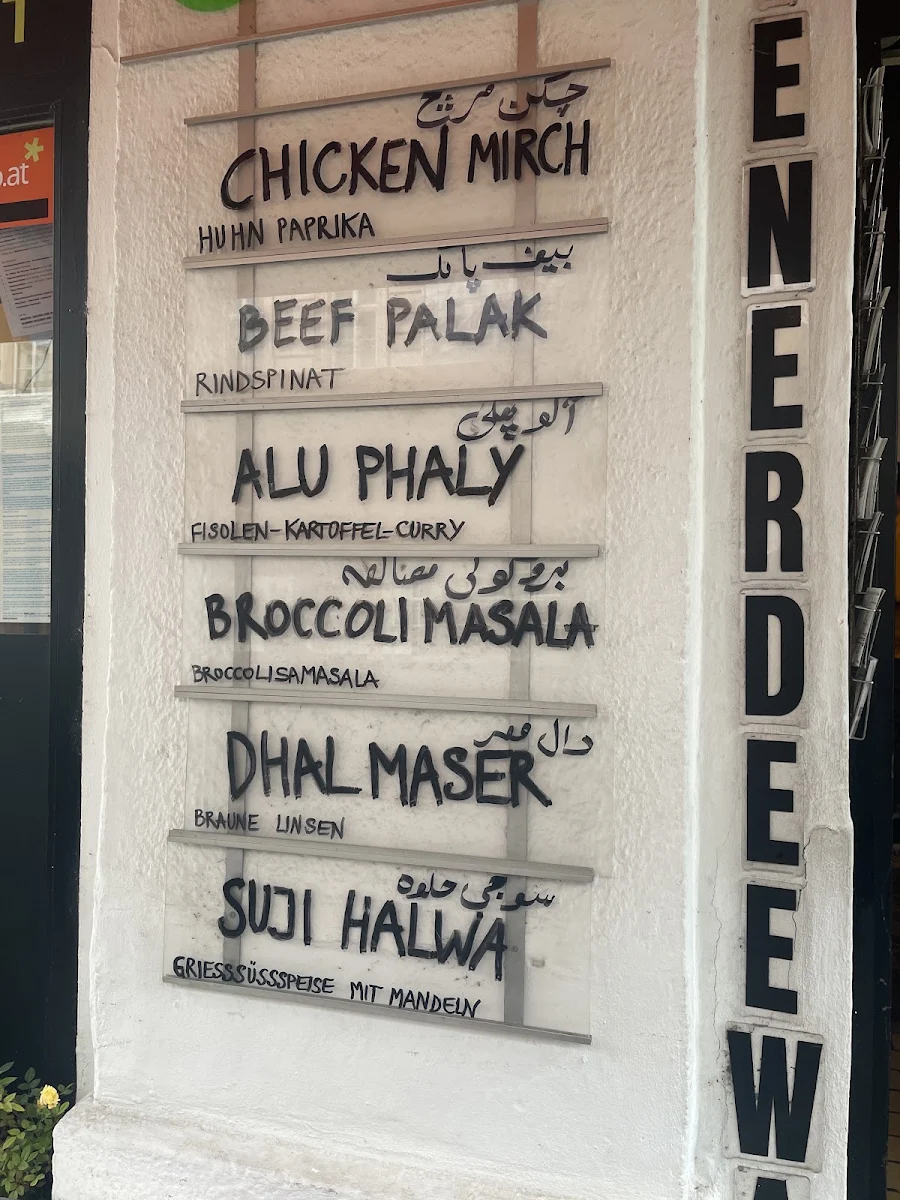 چکن مرچ
CHICKEN MIRCH
HUHN PAPRIKA
بیف پالک
BEEF PALAK
RINDSPINAT
آلو پھلی
ALU PHALY
FISOLEN-KARTOFFEL-CURRY
بروکولی مصالحہ
BROCCOLI MASALA
BROCCOLISAMASALA
دال مسر
DHAL MASER
BRAUNE LINSEN
سوجی حلوہ
SUJI HALWA
GRIESSSÜSSSPEISE MIT MANDELN
ENERDEEWA
.at